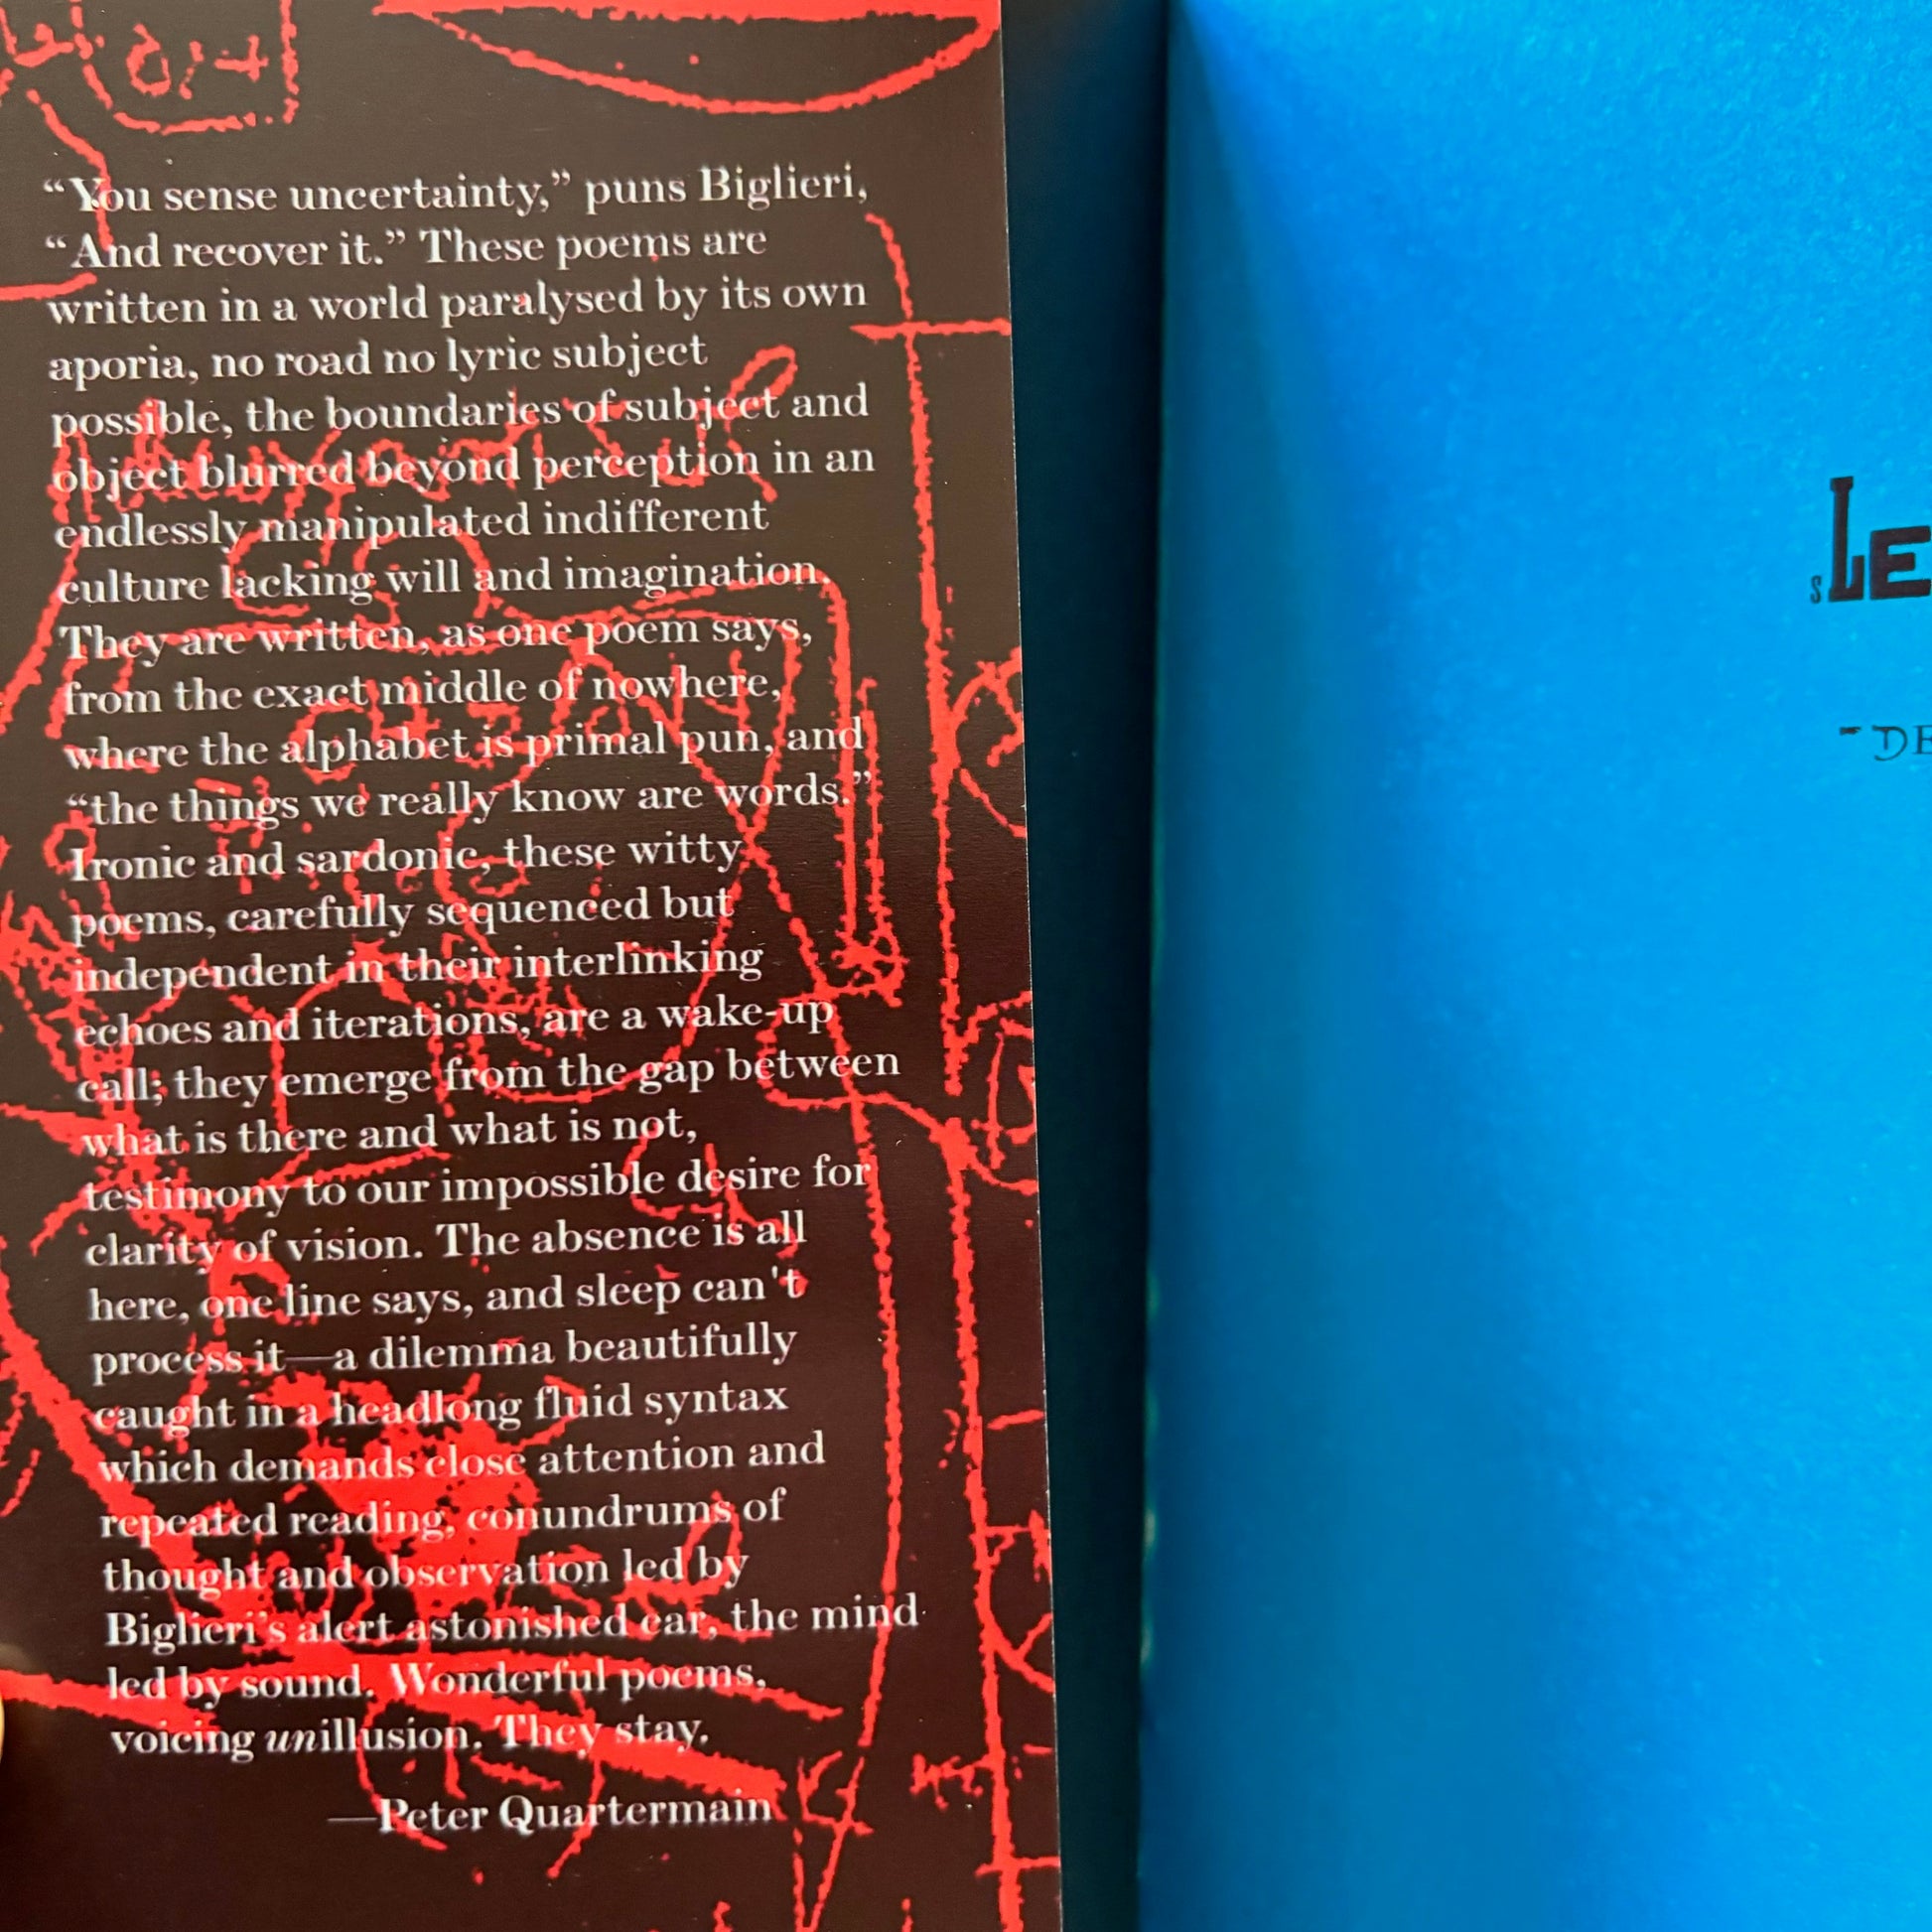 “You sense uncertainty,” puns Biglieri,
“And recover it.” These poems are
written in a world paralysed by its own
aporia, no road no lyric subject
possible, the boundaries of subject and
object blurred beyond perception in an
endlessly manipulated indifferent
culture lacking will and imagination.
They are written, as one poem says,
from the exact middle of nowhere,
where the alphabet is primal pun, and
“the things we really know are words.”
Ironic and sardonic, these witty
poems, carefully sequenced but
independent in their interlinking
echoes and iterations, are a wake-up
call; they emerge from the gap between
what is there and what is not,
testimony to our impossible desire for
clarity of vision. The absence is all
here, one line says, and sleep can't
process it—a dilemma beautifully
caught in a headlong fluid syntax
which demands close attention and
repeated reading, conundrums of
thought and observation led by
Biglieri’s alert astonished ear, the mind
led by sound. Wonderful poems,
voicing unillusion. They stay.
—Peter Quartermain
sLE
-DE